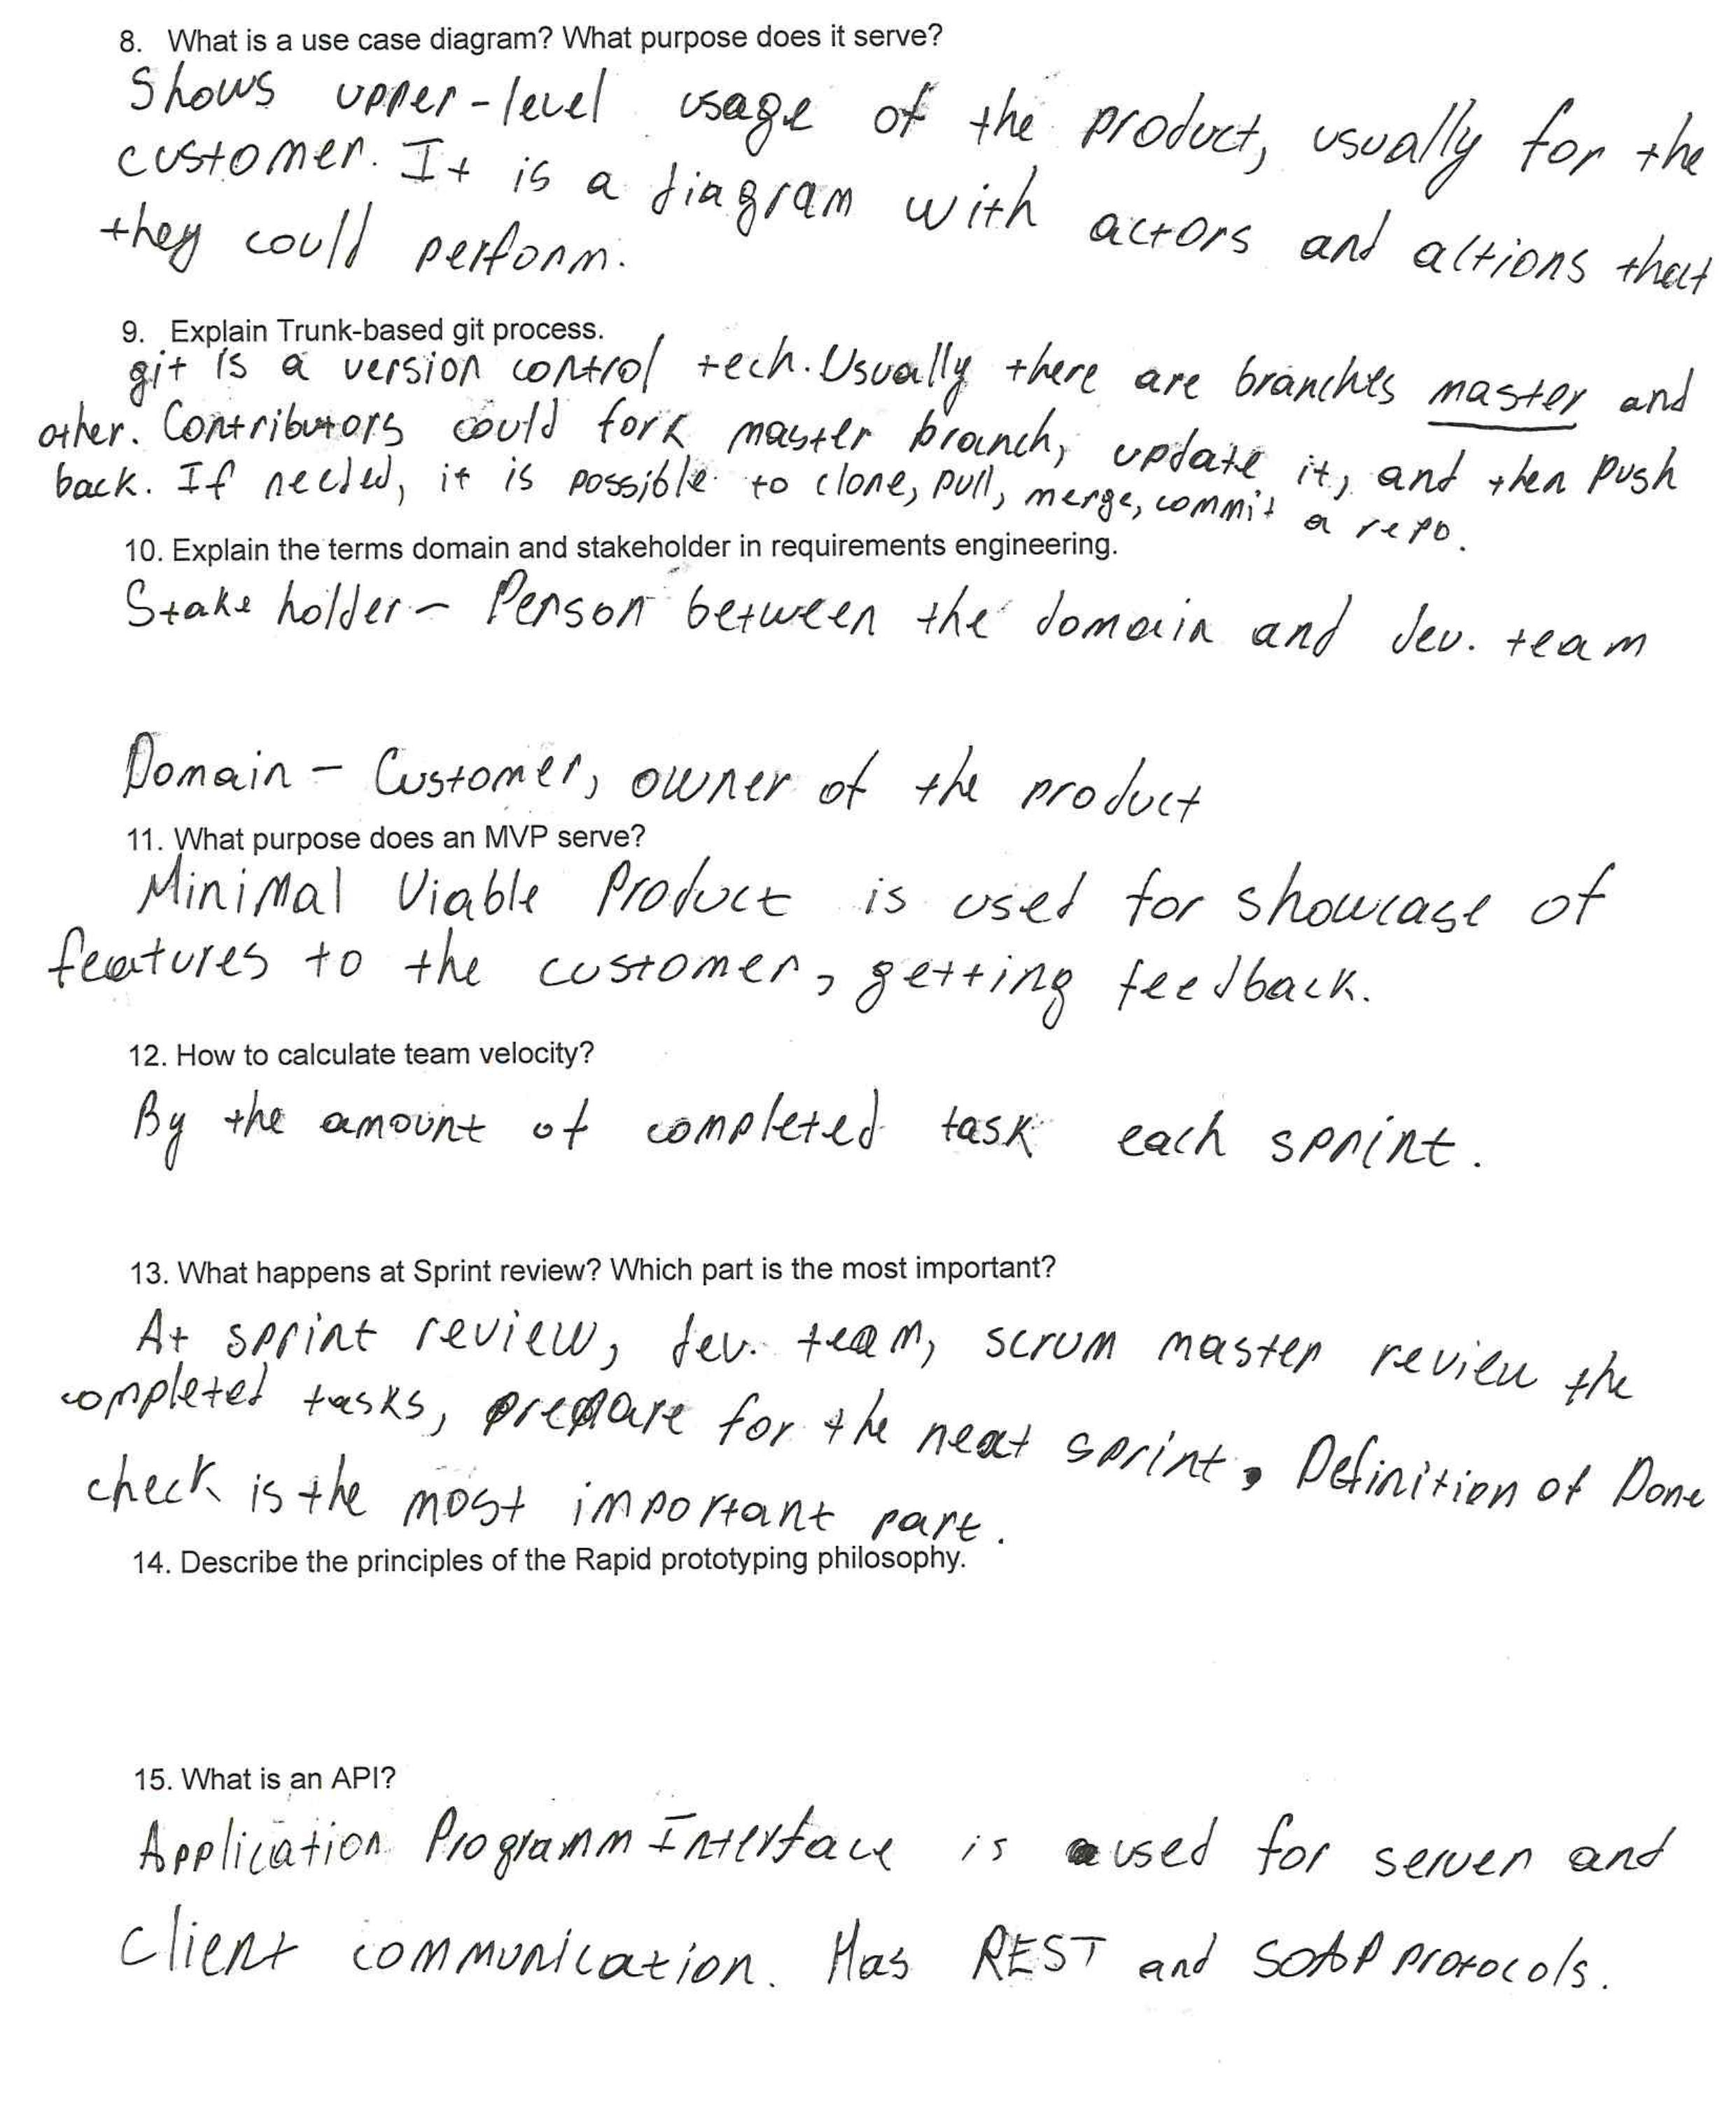 8. What is a use case diagram? What purpose does it serve?
Shows upper-level usage of the product, usually for the
customer. It is a diagram with actors and actions that
they could perform.
9. Explain Trunk-based git process.
git is a version control tech. Usually there are branches master and
other. Contributors could fork master branch, update it, and then push
back. If needed, it is possible to clone, pull, merge, commit a repo.
10. Explain the terms domain and stakeholder in requirements engineering.
Stake holder - Person between the domain and dev. team
Domain - Customer, owner of the product
11. What purpose does an MVP serve?
Minimal Viable Product is used for showcase of
features to the customer, getting feedback.
12. How to calculate team velocity?
By the amount of completed task each sprint.
13. What happens at Sprint review? Which part is the most important?
At sprint review, dev. team, scrum master review the
completed tasks, prepare for the next sprint. Definition of Done
check is the most important part.
14. Describe the principles of the Rapid prototyping philosophy.
15. What is an API?
Application Programm Interface is used for server and
client communication. Has REST and SOAP protocols.